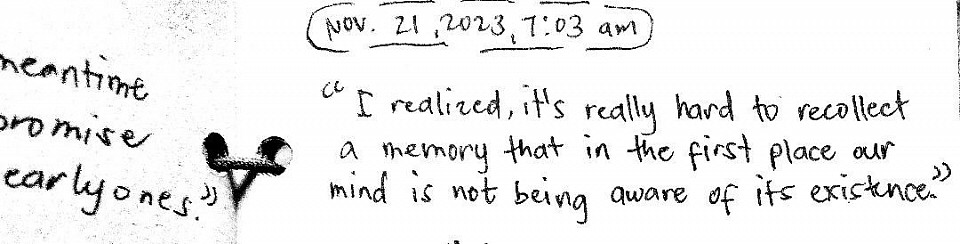 meantime
promise
early ones."
Nov. 21, 2023, 7:03 am
"I realized, it's really hard to recollect
a memory that in the first place our
mind is not being aware of its existence."